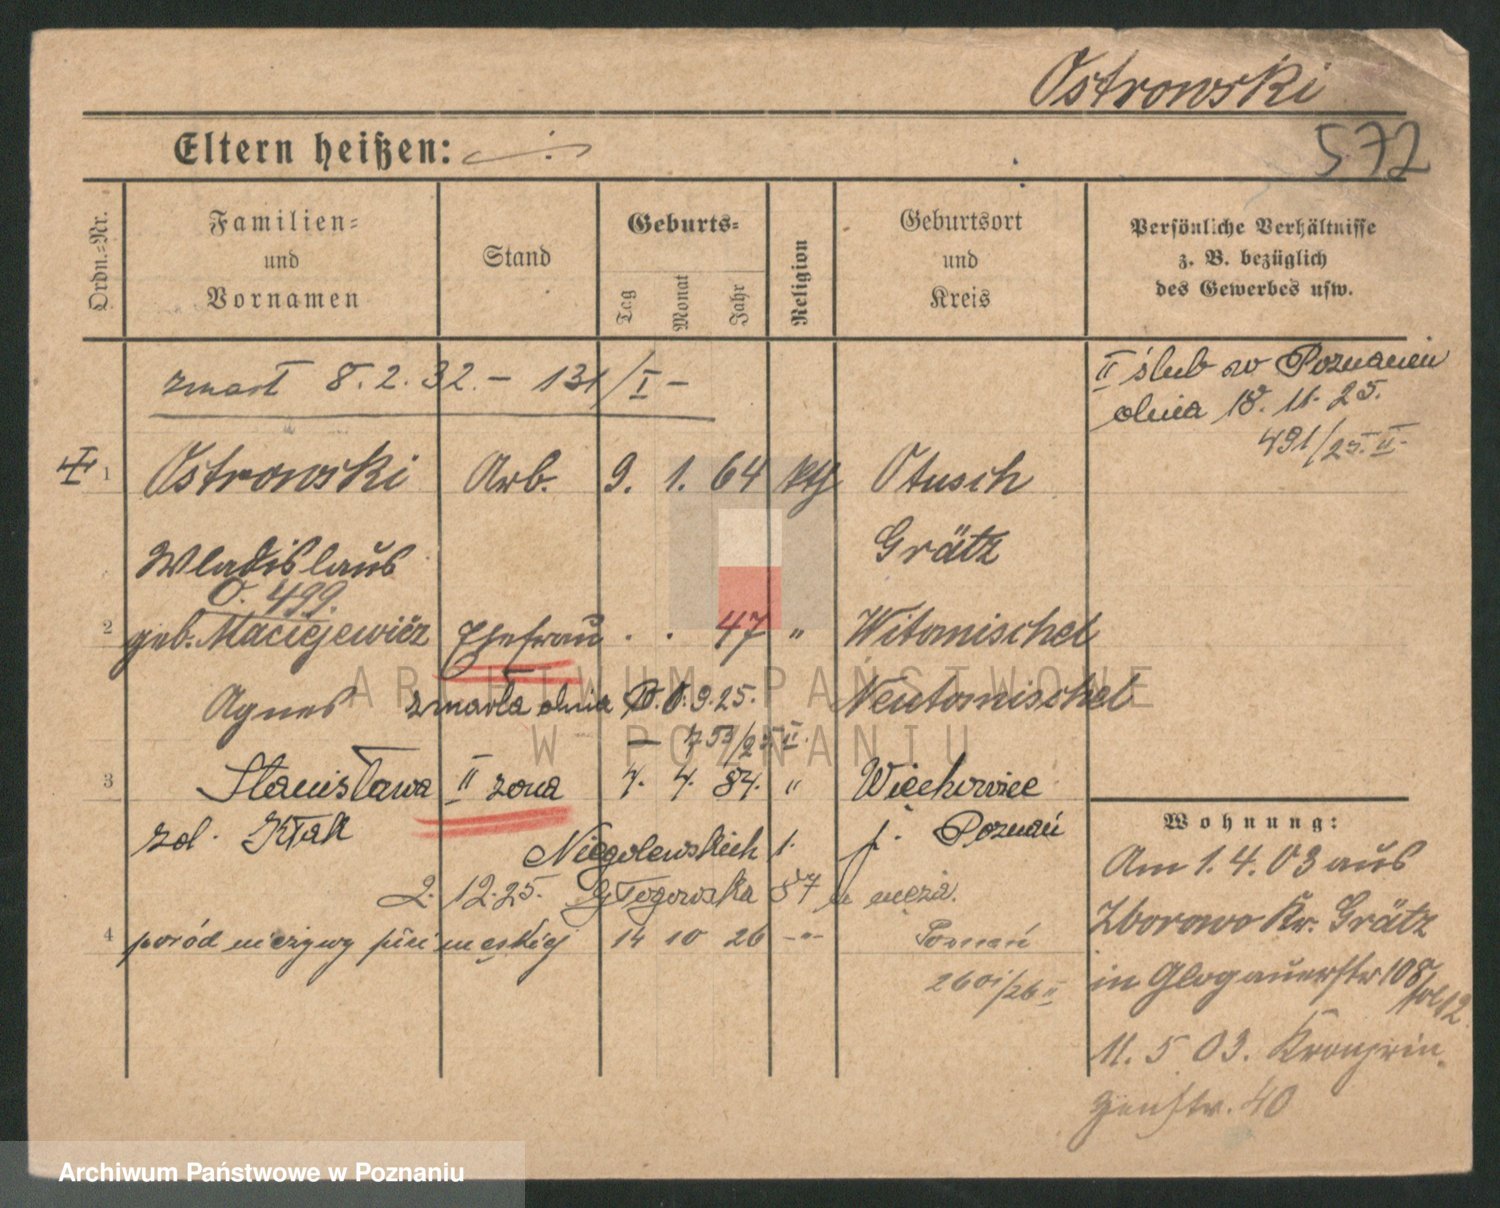 Ostrowski
572
Eltern heißen:
Ordn.-Nr.
Familien- und Vornamen
Stand
Geburts-
Tag Monat Jahr
Religion
Geburtsort und Kreis
Persönliche Verhältnisse z. B. bezüglich des Gewerbes usw.
zmarł 8.2.32. – 131/I –
II ślub w Poznaniu
dnia 18. 11. 25.
491/25. II.
1 Ostrowski Arb. 9. 1. 64 kth Otusch
Wladislaus Grätz
O. 499.
2 geb. Maciejewicz Ehefrau . . 47 " Witomischel
Agnes zmarła dnia 8.9.25. Neutomischel
753/25 II.
3 Stanisława II żona 7. 4. 84. " Wiechowice
zd. Kłak p. Poznań
Niegolewskich 1.
2. 12. 25. Głogowska 87 u męża.
4 poród nieżywy płci męskiej 14 10 26 -"- Poznań
2601/26 II
Wohnung:
Am 1.4.03 aus
Zborowo Kr. Grätz
in Glogauerstr 108
11. 5 03. Kronprin-
zenstr. 40
ARCHIWUM PAŃSTWOWE
W POZNANIU
Archiwum Państwowe w Poznaniu